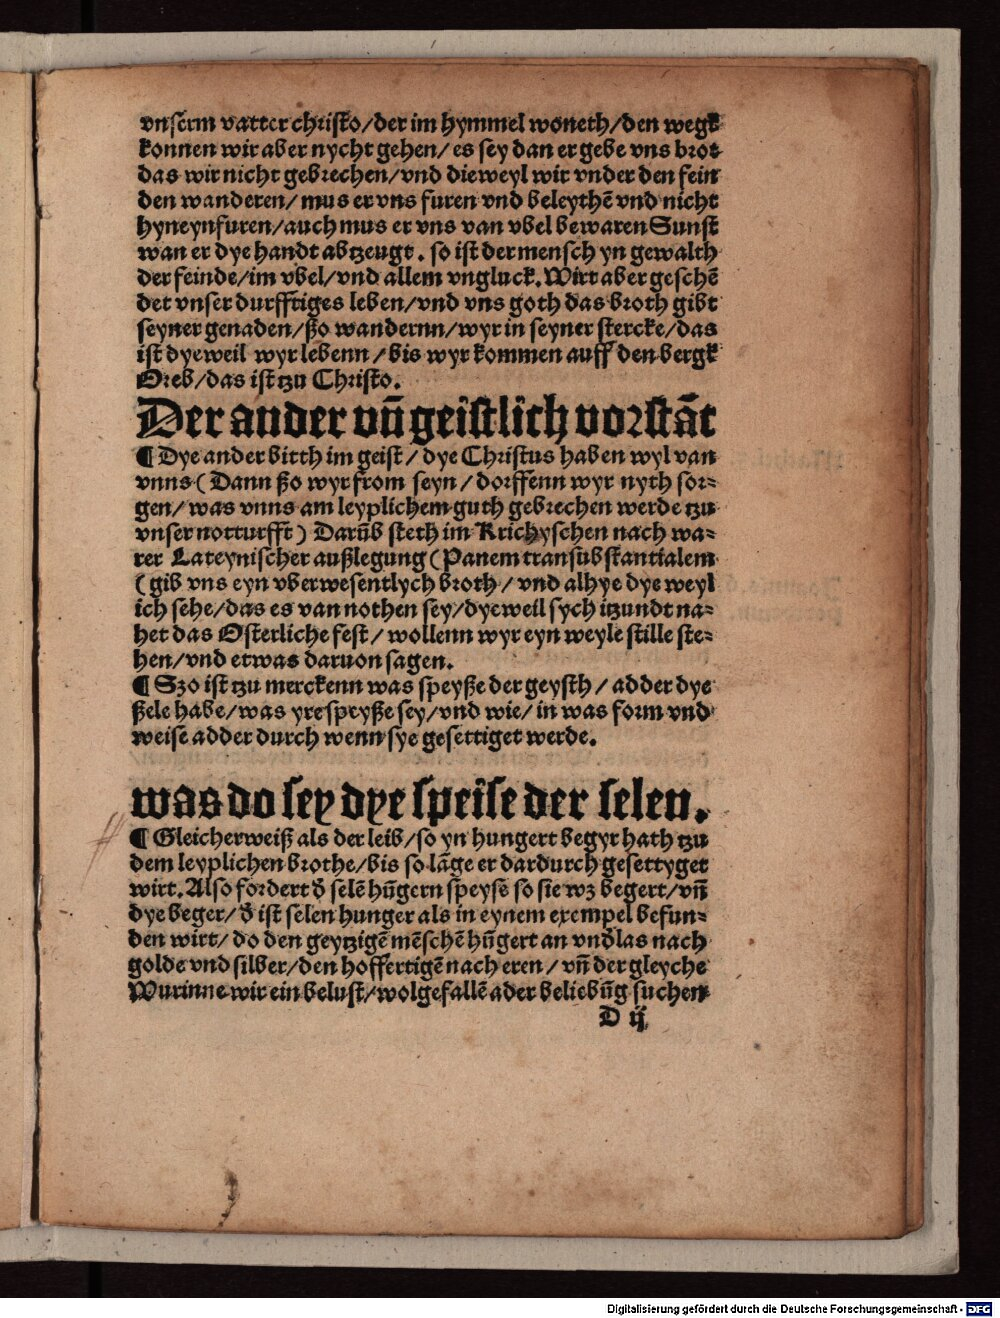 vnserm vatter christo/der im hymmel woneth/den wegk
konnen wir aber nycht gehen/es sey dan er gebe vns brot
das wir nicht gebrechen/vnd dieweyl wir vnder den fein
den wanderen/mus er vns furen vnd beleythē vnd nicht
hyneynfuren/auch mus er vns van vbel bewaren Sunst
wan er dye handt abtzeugt. so ist der mensch yn gewalth
der feinde/im vbel/vnd allem vngluck. Wirt aber geschē
det vnser durfftiges leben/vnd vns goth das broth gibt
seyner genaden/ßo wandernn/wyr in seyner stercke/das
ist dyeweil wyr lebenn/bis wyr kommen auff den bergk
Oreb/das ist tzu Christo.
Der ander vñ geistlich vorstāt
¶ Dye ander bitth im geist/dye Christus haben wyl van
vnns (Dann ßo wyr from seyn/dorffenn wyr nyth sor⸗
gen/was vnns am leyplichem guth gebrechen werde tzu
vnser notturfft) Darūb steth im Krichyschen nach wa⸗
rer Lateynischer außlegung (Panem transubstantialem
(gib vns eyn vberwesentlych broth/vnd alhye dye weyl
ich sehe/das es van nothen sey/dyeweil sych itzundt na⸗
het das Osterliche fest/wollenn wyr eyn weyle stille ste⸗
hen/vnd etwas daruon sagen.
¶ Szo ist tzu merckenn was speyße der geysth/adder dye
ßele habe/was yre speyße sey/vnd wie/in was form vnd
weise adder durch wenn sye gesettiget werde.
was do sey dye speise der selen.
¶ Gleicherweiß als der leib/so yn hungert begyr hath tzu
dem leyplichen brothe/bis so lāge er dardurch gesettyget
wirt. Also fordert d̕ selē hūgern speyse so sie wz begert/vñ
dye beger/d̕ ist selen hunger als in eynem exempel befun⸗
den wirt/do den geytzigē mēschē hūgert an vnd̕las nach
golde vnd silber/den hoffertigē nach eren/vñ der gleyche
Wurinne wir ein belust/wolgefallē ader beliebūg suchen
D ij
Digitalisierung gefördert durch die Deutsche Forschungsgemeinschaft - DFG